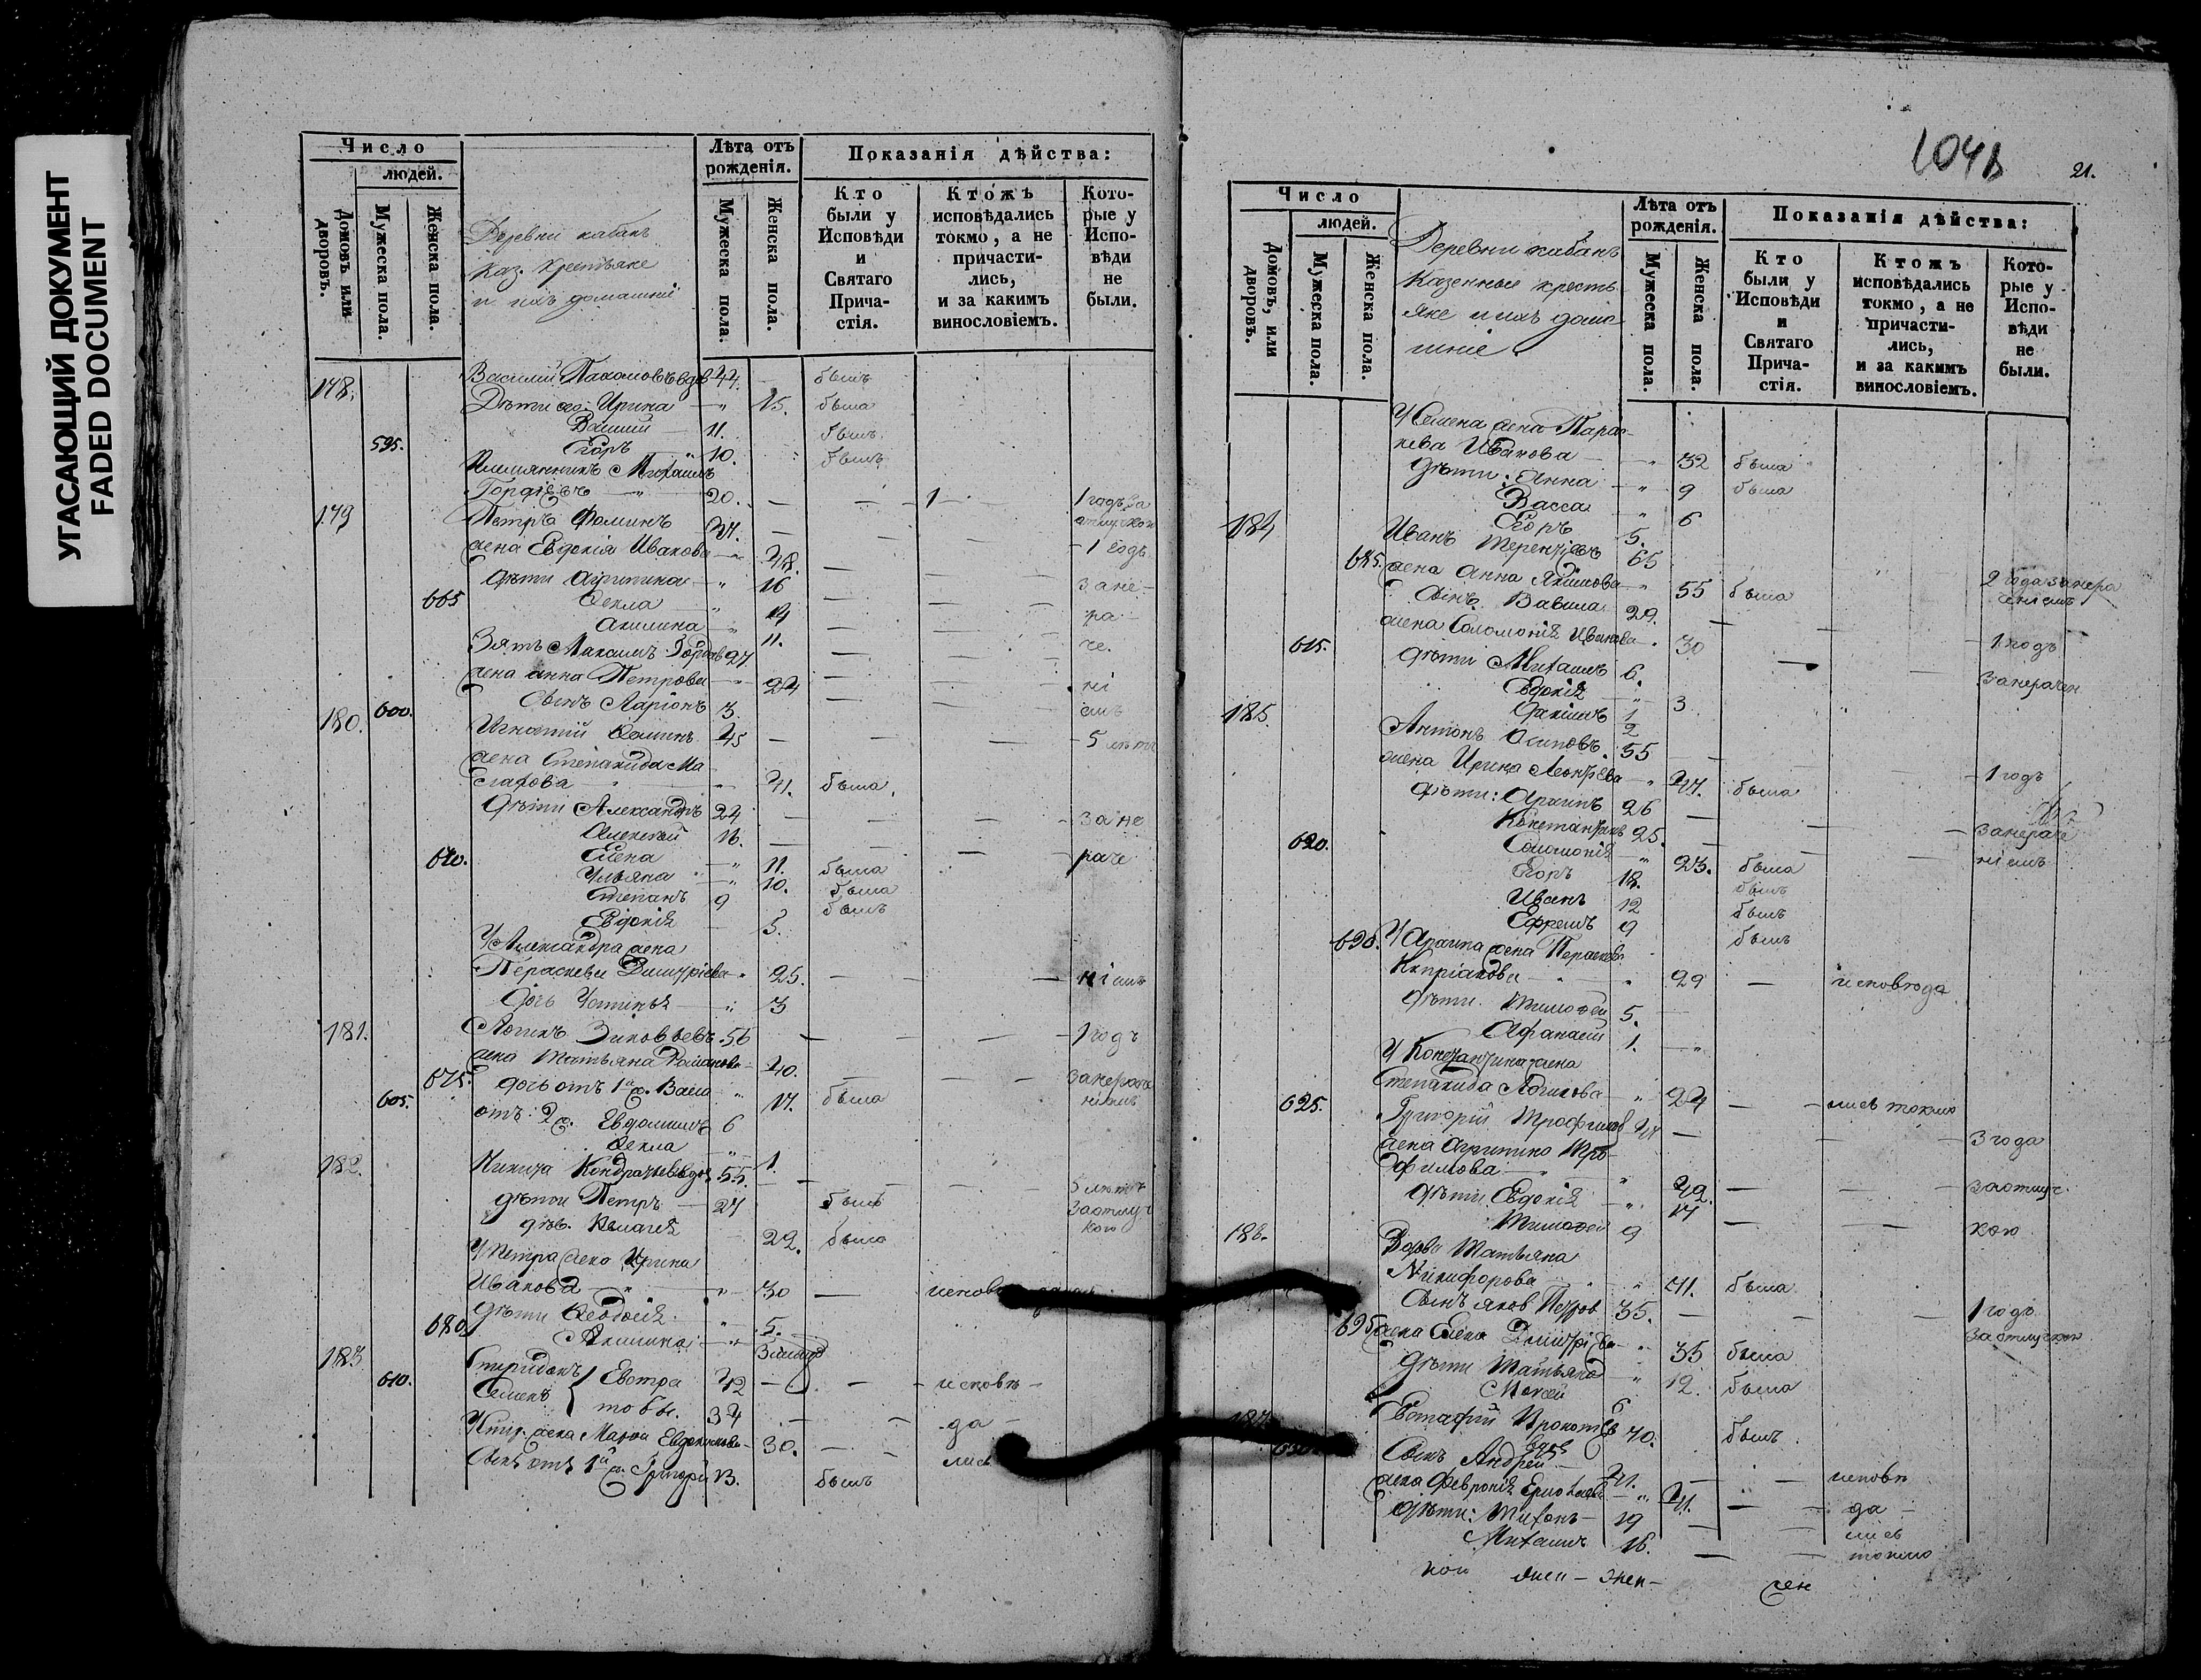 УГАСАЮЩИЙ ДОКУМЕНТ
FADED DOCUMENT
Число
людей.
Домовъ или дворовъ.
Мужеска пола.
Женска пола.
Деревни кабанъ
каз. крестьяне
и ихъ домашніе
Лѣта отъ рожденія.
Мужеска пола.
Женска пола.
Показанія дѣйства:
Кто были у Исповѣди и Святаго Прича-стія.
Ктожъ исповѣдались токмо, а не причасти-лись, и за какимъ винословіемъ.
Кото-рые у Испо-вѣди не были.
178. Василій Пахомовъ вдов 44. — былъ
Дѣти его: Ирина — " 15. была
Василій — 11. былъ
595. Егоръ " 10. былъ
Племянникъ Михаилъ
Гордѣевъ — " 20. — — 1 — 1 годъ за
179 Петръ Фоминъ 47. — отлучкою
жена Евдокія Иванова — " 48. — — — 1 годъ
дѣти Агрипина — " 16 — — — за не-
665 Фекла — " 14 — — — ра-
Акилина — " 11. — — — че.
Зять Максимъ 27
жена Анна Петрова — " 24 — — — ні
600. Сынъ Ларіонъ 3. — — — емъ
180. Игнатій Фоминъ 45 — — — 5 лѣтъ
жена Степанида Ма
" " 41. была.
дѣти Александръ 24 — — — за не
Алексѣй 16. — — —
670. Елена — " 11. была — раче
Ульяна — " 10. была
Степанъ 9 былъ
Евдокія — 5.
У Александра жена
Параскева Димитріева " 25. — — ніемъ
дочь Устинья — " 3
181. Логинъ Зиновьевъ 56 — — — 1 годъ
жена Татьяна Романова — 40. — — — занераче
675. дочь отъ 1й ж. Васса " 17. была ніемъ
605. отъ 2 ж. Евдокимъ 6
Фекла — " 1.
182. Никита Кондратьевъ вдов 55. — — — 5 лѣтъ
дѣти Петръ — 27 былъ заотлуч
дѣв. Пелагея — 22. была кою
У Петра жена Ирина
Иванова — " — " 30 — исповѣ
дѣти Феодосія " 5.
680 Акилина — "
183. Спиридонъ } Евстра 42 — — исповѣ —
610. Семенъ } товы. 34 — — да —
У Спир. жена Марья Евдокимова — 30. — — лись
Сынъ отъ 1й ж. Григорій 13. былъ
104в
21.
Число
людей.
Домовъ, или дворовъ.
Мужеска пола.
Женска пола.
Деревни кабанъ
казенные кресть
яне и ихъ дома
шніе
Лѣта отъ рожденія.
Мужеска пола.
Женска пола.
Показанія дѣйства:
Кто были у Исповѣди и Святаго Прича-стія.
Ктожъ исповѣдались токмо, а не причасти-лись, и за какимъ винословіемъ.
Кото-рые у Испо-вѣди не были.
У Семена жена Парас-
кева Иванова — " 32 была
дѣти: Анна — " 9 была
Васса — " 6
Егоръ 5.
184 Иванъ Терентіевъ 65 2 года занера
685. жена Анна Якимова — " 55 была ченіемъ
Сынъ Вавила 29. — — — 1 годъ
жена Соломонія Иванова " 30 — —
615. дѣти Михаилъ 6. занерачен
Евдокія " 3
Якимъ 1
185. Антонъ Осиповъ 55 — — — 1 годъ
жена Ирина Леонтіева — " 47. была
дѣти: Архипъ 26 — — — занераче
Константинъ 25. — — — ніемъ
620. Соломонія " 23. была
Егоръ 18. былъ
Иванъ 12 былъ
Ефремъ 9 былъ
690. У Архипа жена Параскева
Кипріанова — " " 29 — исповѣда
дѣти Тимофей 5. —
Афанасій 1. — "
У Константина жена
Степанида Логинова — " 24 — — лись токмо
625. Григорій Трофимовъ — — — 3 года
жена Агрипина Тро-
фимова — " " 42. — — — заотлуч.
дѣти Евдокія " 17 — —
Тимофей 9 кою
186. Вдова Татьяна
Никифорова — " 71. была
Сынъ Яковъ Петров. 35. — — — 1 годъ
695 жена Елена Димитріева — " 35 была заотлучкою
дѣти Татьяна — " 12. была
Моѵсей 6
187. Евстафій Прокопьевъ 70. былъ
Сынъ Андрей — 41. — — исповѣ
жена Февронія — " 41. — — да —
дѣти: Тихонъ — 19 — — лись
Михаилъ 16. — — токмо